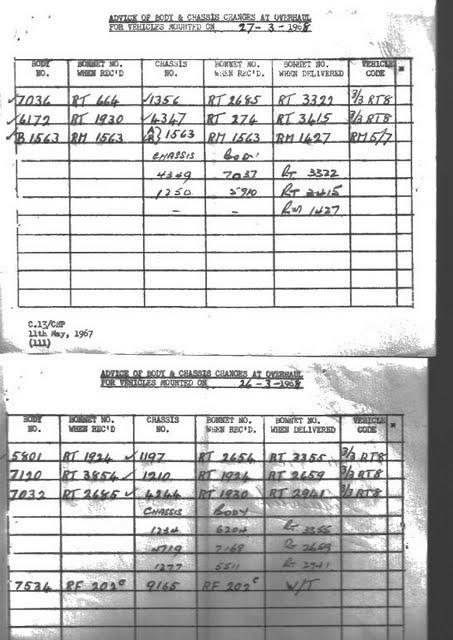 ADVICE OF BODY & CHASSIS CHANGES AT OVERHAUL
FOR VEHICLES MOUNTED ON 27-3-1968
BODY NO. BONNET NO. WHEN REC'D CHASSIS NO. BONNET NO. WHEN REC'D. BONNET NO. WHEN DELIVERED VEHICLE CODE *
✓7036 RT 664 ✓1356 RT 2685 RT 3322 3/3 RT8
✓6172 RT 1930 ✓4347 RT 274 RT 3415 3/3 RT8
✓B1563 RM 1563 A) B) 1563 RM 1563 RM 1427 RM 5/7
CHASSIS BODY
4349 7037 RT 3322
1250 RT 2415
- - RM 1427
C.13/CHP
11th May, 1967
(111)
ADVICE OF BODY & CHASSIS CHANGES AT OVERHAUL
FOR VEHICLES MOUNTED ON 26-3-1968
BODY NO. BONNET NO. WHEN REC'D CHASSIS NO. BONNET NO. WHEN REC'D. BONNET NO. WHEN DELIVERED VEHICLE CODE *
5801 RT 1924 ✓1197 RT 2654 RT 3355 3/3 RT8
7120 RT 3854 ✓1210 RT 1924 RT 2659 3/3 RT8
7032 RT 2685 ✓4244 RT 1930 RT 2941 3/3 RT8
CHASSIS BODY
1234 6204 RT 3355
4719 7168 RT 2659
1277 5511 RT 2941
7534 RF 202c 9165 RF 202c W/T